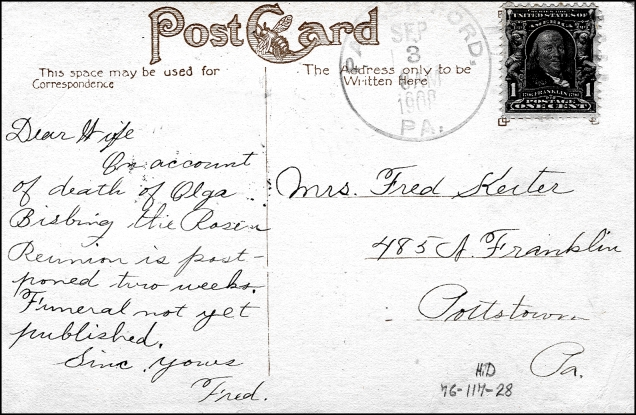 Post Card
This space may be used for
Correspondence
The Address only to be
Written Here
SEP
3
PA.
UNITED STATES OF
AMERICA
1 FRANKLIN 1
POSTAGE
ONE CENT
Dear Wife
On account
of death of Olga
Bisbing the Rosen
Reunion is post-
poned two weeks.
Funeral not yet
published.
Sinc. yours
Fred.
Mrs. Fred Keiter
485 N. Franklin
Pottstown
Pa.
H.D
76-117-28